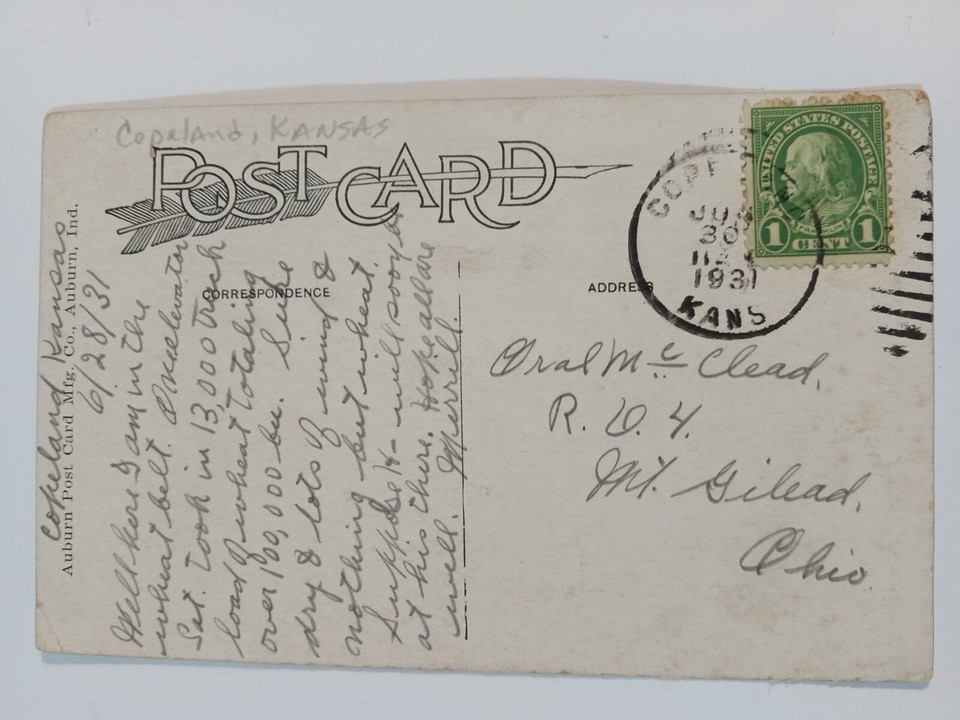 Copeland, KANSAS
POST CARD
CORRESPONDENCE
ADDRESS
Auburn Post Card Mfg. Co., Auburn, Ind.
UNITED STATES POSTAGE
FRANKLIN
1 CENT 1
COPE
JUN
30
1931
KANS
Copeland Kansas
6/28/31
Well here I am in the
wheat belt. One elevator
Sat. took in 13,000 truck
load of wheat totaling
over 100,000 bu. Sure
dry & lots of wind &
nothing but wheat.
Suppose 14 - will soon be
at his there. Hope all are
well. Merrill
Oral McClead,
R. D. 4.
Mt. Gilead,
Ohio